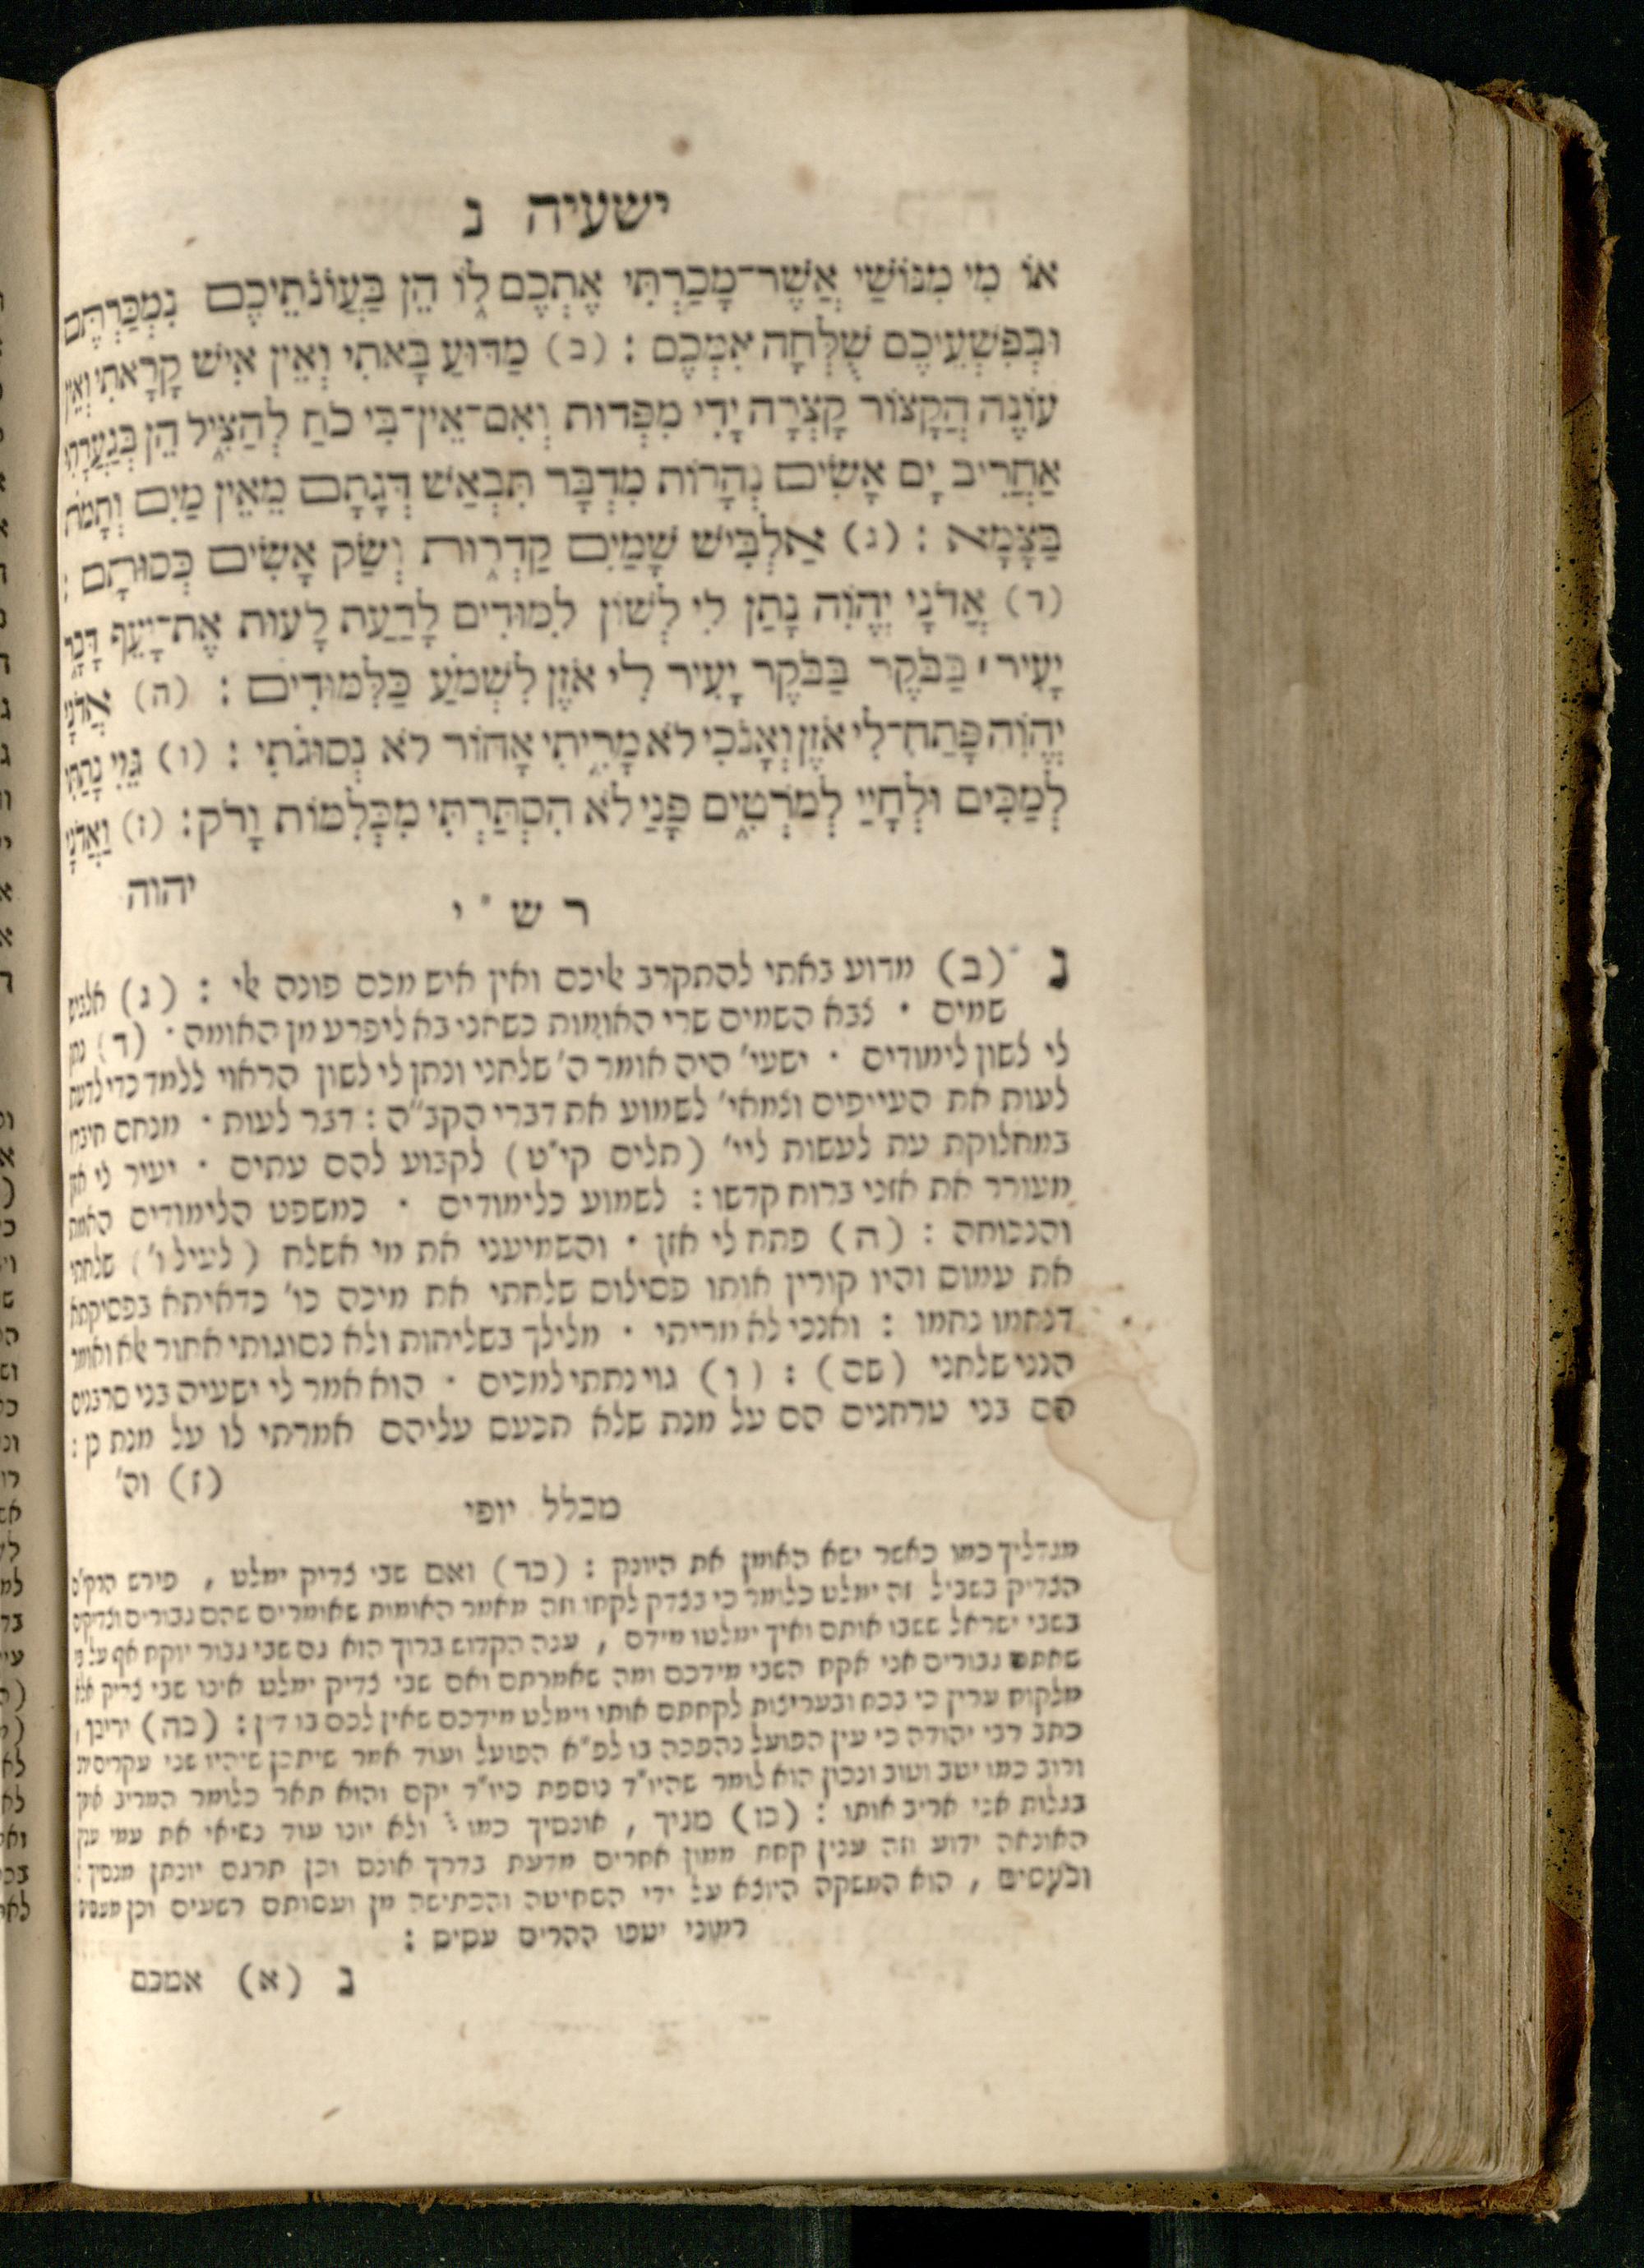 ישעיה נ
אוֹ מִי מִנּוֹשַׁי אֲשֶׁר־מָכַרְתִּי אֶתְכֶם לוֹ הֵן בַּעֲוֹנֹתֵיכֶם נִמְכַּרְתֶּם
וּבְפִשְׁעֵיכֶם שֻׁלְּחָה אִמְּכֶם : (ב) מַדּוּעַ בָּאתִי וְאֵין אִישׁ קָרָאתִי וְאֵין
עוֹנֶה הֲקָצוֹר קָצְרָה יָדִי מִפְּדוּת וְאִם־אֵין־בִּי כֹחַ לְהַצִּיל הֵן בְּגַעֲרָתִי
אַחֲרִיב יָם אָשִׂים נְהָרוֹת מִדְבָּר תִּבְאַשׁ דְּגָתָם מֵאֵין מַיִם וְתָמֹת
בַּצָּמָא : (ג) אַלְבִּישׁ שָׁמַיִם קַדְרוּת וְשַׂק אָשִׂים כְּסוּתָם :
(ד) אֲדֹנָי יֱהֹוִה נָתַן לִי לְשׁוֹן לִמּוּדִים לָדַעַת לָעוּת אֶת־יָעֵף דָּבָר
יָעִיר ׀ בַּבֹּקֶר בַּבֹּקֶר יָעִיר לִי אֹזֶן לִשְׁמֹעַ כַּלִּמּוּדִים : (ה) אֲדֹנָי
יֱהֹוִה פָּתַח־לִי אֹזֶן וְאָנֹכִי לֹא מָרִיתִי אָחוֹר לֹא נְסוּגֹתִי : (ו) גֵּוִי נָתַתִּי
לְמַכִּים וּלְחָיַי לְמֹרְטִים פָּנַי לֹא הִסְתַּרְתִּי מִכְּלִמּוֹת וָרֹק : (ז) וַאֲדֹנָי
יהוה
ר ש " י
נ (ב) מדוע באתי להתקרב אליכם ואין איש מכם פונה אלי : (ג) אלביש
שמים · צבא השמים שרי האומות כשאני בא ליפרע מן האומה · (ד) נתן
לי לשון לימודים · ישעי' היה אומר ה' שלחני ונתן לי לשון הראוי ללמד כדי לדעת
לעות את העייפים וצמאי' לשמוע את דברי הקב"ה : דבר לעות · מנחם חיברו
במחלוקת עת לעשות ליי' (תלים קי"ט) לקבוע להם עתים · יעיר לי אזן
מעורר את אזני ברוח קדשו : לשמוע כלימודים · כמשפט הלימודים האמת
והנכוחה : (ה) פתח לי אזן · והשמיעני את מי אשלח (לעיל ו') שלחתי
את עמוס והיו קורין אותו פסילוס שלחתי את מיכה כו' כדאיתא בפסיקתא
דנחמו נחמו : ואנכי לא מריתי · מלילך בשליחות ולא נסוגותי אחור אלא ואומר
הנני שלחני (שם) : (ו) גוי נתתי למכים · הוא אמר לי ישעיה בני סרבנים
הם בני טרחנים הם על מנת שלא תכעס עליהם אמרתי לו על מנת כן :
(ז) וה'
מכלל יופי
מגדליך כמו כאשר ישא האומן את היונק : (כד) ואם שבי צדיק ימלט , פירש הרק"ם
הצדיק בשביל זה ימלט כלומר כי בצדק לקחו וזה מאמר האומות שאומרים שהם גבורים וצדיקים
בשבי ישראל ששבו אותם ואיך ימלטו מידם , ענה הקדוש ברוך הוא גם שבי גבור יוקח אף על פי
שאתם גבורים אני אקח השבי מידכם ומה שאמרתם ואם שבי צדיק ימלט אינו שבי צדיק אלא
מלקוח עריץ כי בכח ובעריצות לקחתם אותו וימלט מידכם שאין לכם בו דין : (כה) יריבך ,
כתב רבי יהודה כי עין הפועל נהפכה בו לפ"א הפועל ועוד אמר שיתכן שיהיו שני עקרים
ורוב כמו יטב וטוב ונכון הוא לומר שהיו"ד נוספת כיו"ד יקם והוא תאר כלומר המריב אתך
בגלות אני אריב אותו : (כו) מניך , אונסיך כמו ולא יונו עוד נשיאי את עמי ענין
האונאה ידוע וזה ענין קחת ממון אחרים מדעת בדרך אונס וכן תרגם יונתן מנסיך :
וכעסים , הוא המשקה היוצא על ידי הסחיטה והכתישה מן ועסותם רשעים וכן
רמוני יטפו ההרים עסים :
נ (א) אמכם